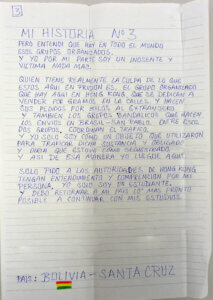 3
MI HISTORIA Nº3
PERO ENTENDI QUE HAY EN TODO EL MUNDO
ESOS GRUPOS ORGANIZADOS.
Y YO POR MI PARTE SOY UN INOSENTE Y
VICTIMA NADA MAS.
QUIEN TIENE REALMENTE LA CULPA DE LO QUE
ESTOY AQUI EN PRISION ES, EL GRUPO ORGANIZADO
QUE HAY AQUI EN HONG KONG QUE SE DEDICAN A
VENDER POR GRAMOS EN LA CALLES, Y HACEN
SUS PEDIDOS POR KILOS AL EXTRANJERO
Y TAMBIEN LOS GRUPOS BANDALICOS QUE HACEN
LOS ENVIOS EN BRASIL - SAN PABLO. ENTRE ESOS
DOS GRUPOS, COORDINAN EL TRAFICO.
Y YO SOLO SOY COMO UN OBJETO QUE UTILIZARON
PARA TRAFICAR DICHA SUSTANCIA Y OBLIGADO
Y DIRIA QUE ESTUVE COMO SECUESTRADO
Y ASI DE ESA MANERA YO LLEGUE AQUI.
SOLO PIDO A LAS AUTORIDADES DE HONG KONG
TENGAN ENTENDIMIENTO Y COMPRENCION POR MI
PERSONA, YO SOLO SOY UN ESTUDIANTE,
Y DEBO RETORNAR A MI PAIS LO MAS PRONTO
POSIBLE A CONTINUAR CON MIS ESTUDIOS.
PAIS: BOLIVIA - SANTA CRUZ